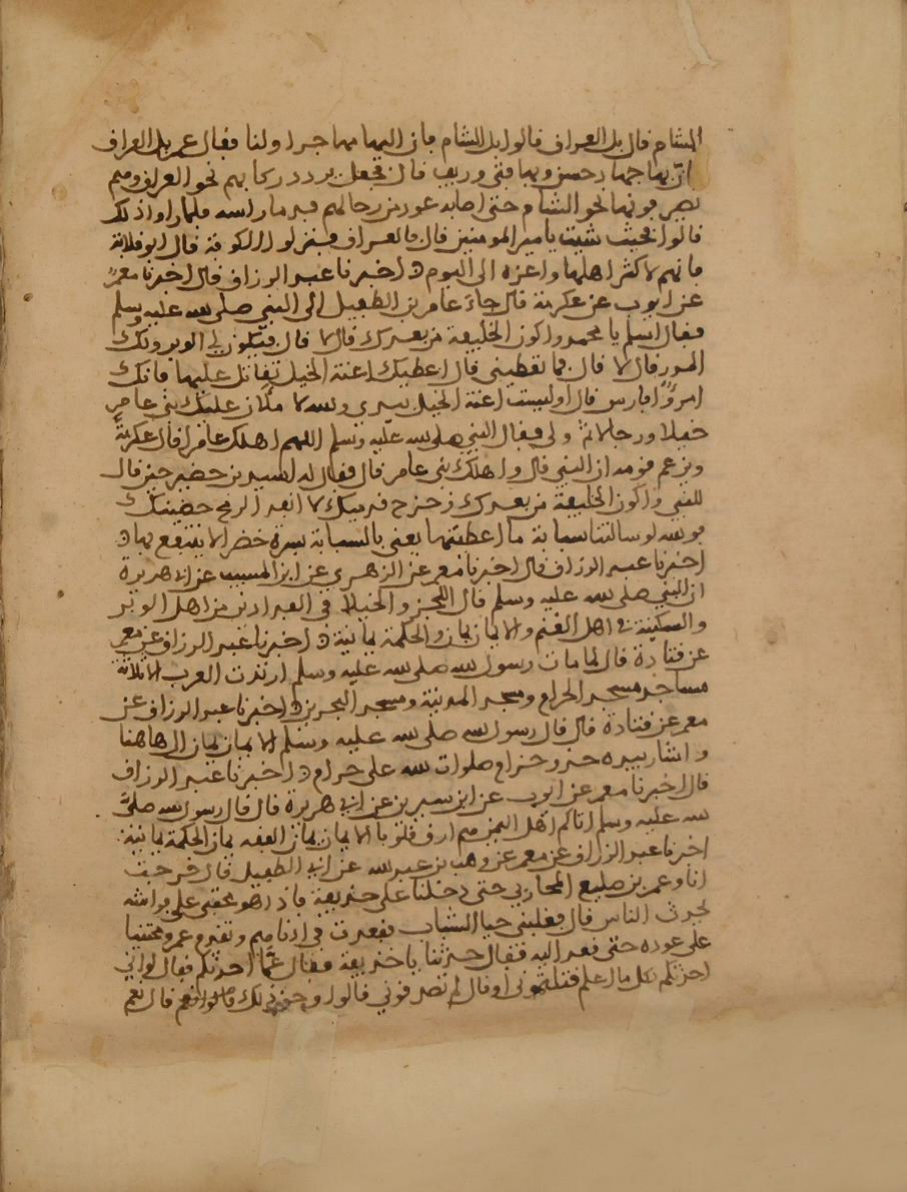 الشام قال بل العراق قالوا بل الشام فان اليها مهاجرا ولنا فقال عمر بل العراق
ان بها جمجمة وبها فتى وريف قال فجعل يردد ركابهم نحو العراق وهم
يصرفونها نحو الشام حتى اصابه عود من رحالهم فدمى راسه فلما راوا ذلك
قالوا بحيث شيت يا امير المومنين قال فالعراق فنزلوا الكوفة قال ابو قلابة
فانهم لاكثر اهلها واعزه الى اليوم اخبرنا عبد الرزاق قال اخبرنا معمر
عن ايوب عن عكرمة قال جاء عامر بن الطفيل الى النبي صلى الله عليه وسلم
فقال اسلم يا محمد واكون الخليفة من بعدك قال لا قال فيكون لي الوبر ولك
المدر قال لا قال فما تعطيني قال اعطيك اعنة الخيل تقاتل عليها فانك
امرؤ فارس قال اوليست اعنة الخيل بيدي والله لا ملان عليك بني عامر
خيلا ورجالا ثم ولى فقال النبي صلى الله عليه وسلم اللهم اهلك عامرا قال عكرمة
ويزعم قومه ان النبي قال واهلك بني عامر قال فقال له اسيد بن حضير حين قال
للنبي واكون الخليفة من بعدك زحزح قدميك لا انفذ الرمح حضنيك
فوالله لو سالتنا سيابة ما اعطيتها يعني بالسيابة بسرة خضرا لا ينتفع بها
اخبرنا عبد الرزاق قال اخبرنا معمر عن الزهري عن ابن المسيب عن ابي هريرة
ان النبي صلى الله عليه وسلم قال الفخر والخيلا في الفدادين من اهل الوبر
والسكينة في اهل الغنم والايمان يمان والحكمة يمانية اخبرنا عبد الرزاق عن معمر
عن قتادة قال لما مات رسول الله صلى الله عليه وسلم ارتدت العرب الا ثلاثة
مساجد مسجد الحرام ومسجد المدينة ومسجد البحرين اخبرنا عبد الرزاق عن
معمر عن قتادة قال قال رسول الله صلى الله عليه وسلم الايمان يمان الى هاهنا
واشار بيده حذو جذام صلوات الله على جذام اخبرنا عبد الرزاق
قال اخبرنا معمر عن ايوب عن ابن سيرين عن ابي هريرة قال قال رسول الله صلى
الله عليه وسلم اتاكم اهل اليمن هم ارق قلوبا الايمان يمان الفقه يمان الحكمة يمانية
اخبرنا عبد الرزاق عن معمر عن وهب بن عبد الله عن ابي الطفيل قال خرجت
انا وعمرو بن صليع المحاربي حتى دخلنا على حذيفة فاذا هو محتبي على فراشه
يحدث الناس قال فغلبني حيا الشباب فقعدت في ادناهم وتقدم عمرو محتنيا
على عوده حتى قعد اليه فقال حدثنا يا حذيفة فقال عما احدثكم فقال لو اني
احدثكم بكل ما اعلم قتلتموني او قال لم تصدقوني قالوا وحق ذلك قال نعم